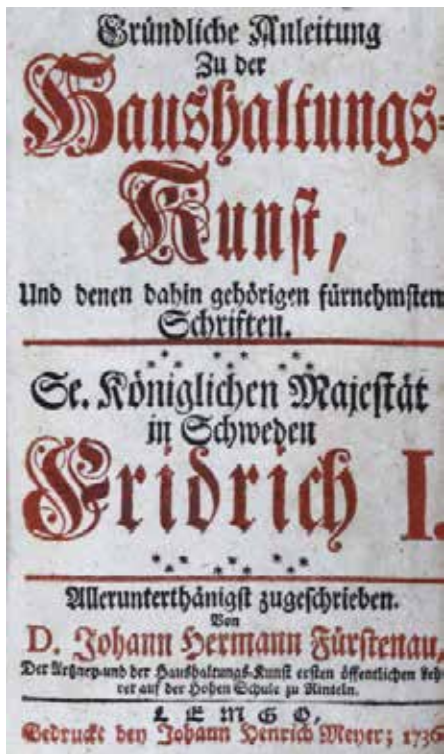 Gründliche Anleitung
Zu der
Haushaltungs-
Kunst,
Und denen dahin gehörigen fürnehmsten
Schrifften.
Se. Königlichen Majestät
in Schweden
Fridrich I.
Allerunterthänigst zugeschrieben.
Von
D. Johann Hermann Fürstenau,
Der Artzney-und der Haushaltungs-Kunst ersten öffentlichen Leh-
rer auf der Hohen Schule zu Rinteln.
LEMGO,
Gedruckt bey Johann Henrich Meyer; 1736